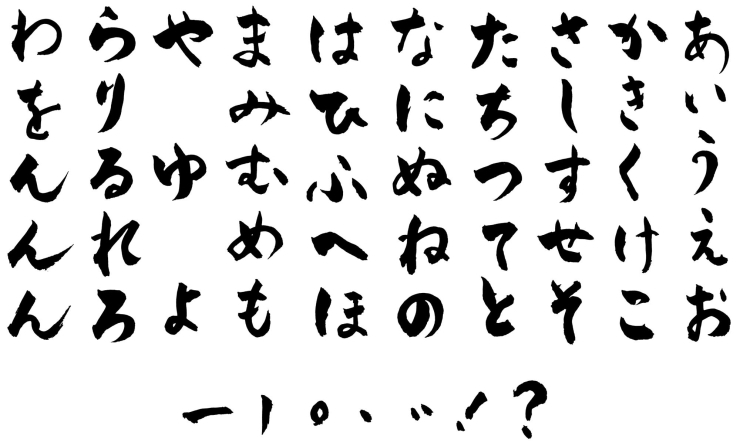 あいうえお
かきくけこ
さしすせそ
たちつてと
なにぬねの
はひふへほ
まみむめも
やゆよ
らりるれろ
わをんんん
ー｜。、゛！？